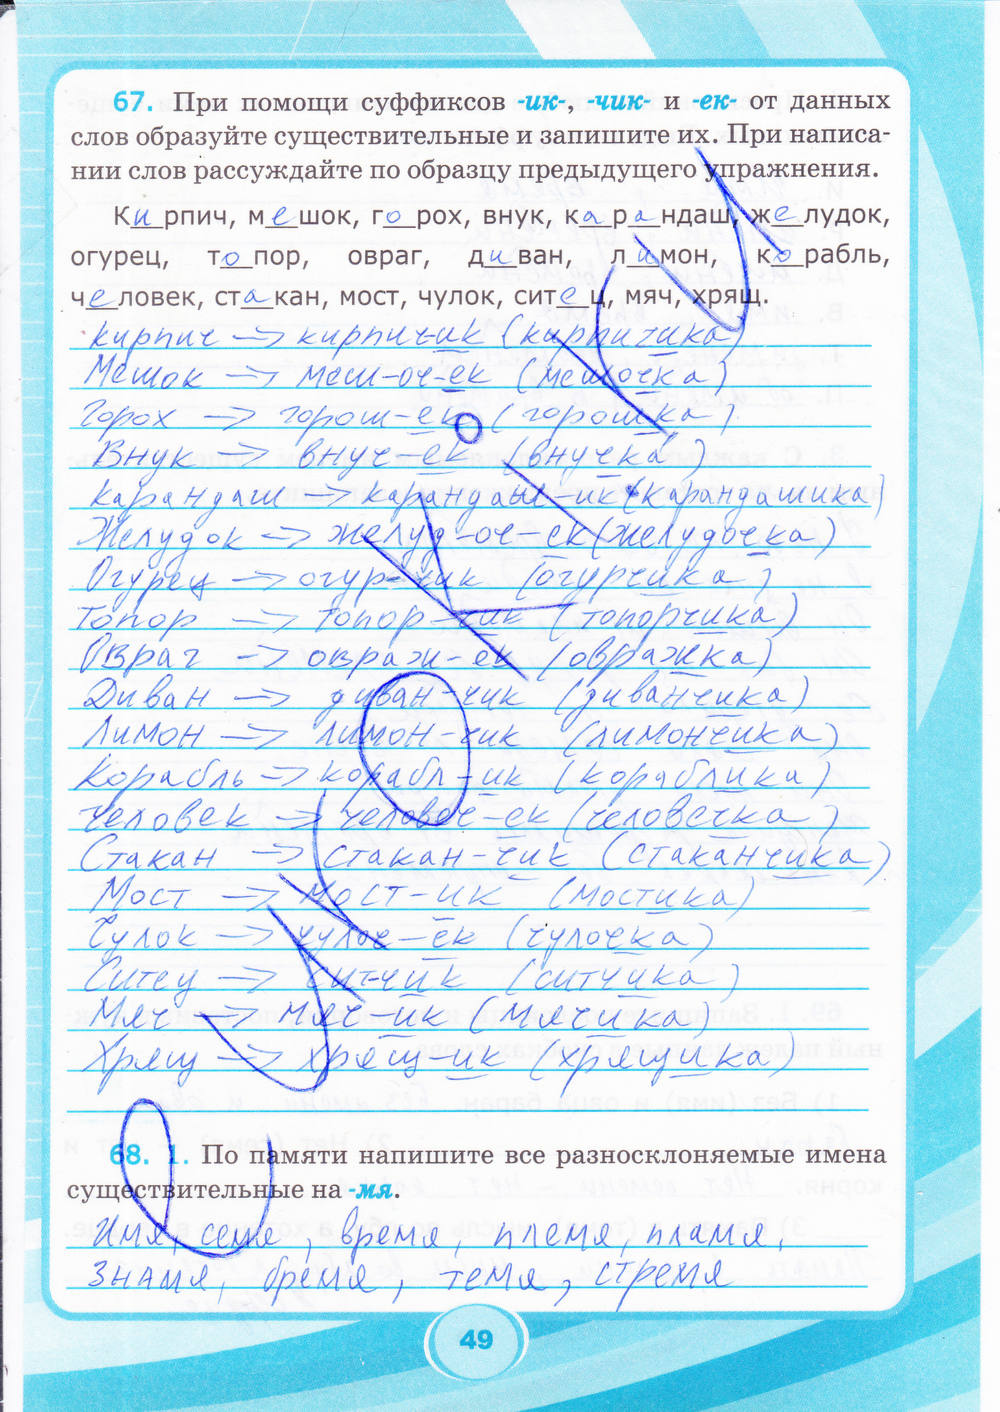 67. При помощи суффиксов -ик-, -чик- и -ек- от данных
слов образуйте существительные и запишите их. При написа-
нии слов рассуждайте по образцу предыдущего упражнения.
Кирпич, мешок, горох, внук, карандаш, желудок,
огурец, топор, овраг, диван, лимон, корабль,
человек, стакан, мост, чулок, ситец, мяч, хрящ.
кирпич -> кирпич-ик (кирпичика)
Мешок -> меш-оч-ек (мешочка)
Горох -> горош-ек (горошка)
Внук -> внуч-ек (внучка)
карандаш -> карандаш-ик (карандашика)
Желудок -> желуд-оч-ек (желудочка)
Огурец -> огур-чик (огурчика)
топор -> топор-чик (топорчика)
Овраг -> овраж-ек (овражка)
Диван -> диван-чик (диванчика)
Лимон -> лимон-чик (лимончика)
Корабль -> корабл-ик (кораблика)
Человек -> человеч-ек (человечка)
Стакан -> стакан-чик (стаканчика)
Мост -> мост-ик (мостика)
Чулок -> чулоч-ек (чулочка)
Ситец -> сит-чик (ситчика)
Мяч -> мяч-ик (мячика)
Хрящ -> хрящ-ик (хрящика)
68. 1. По памяти напишите все разносклоняемые имена
существительные на -мя.
Имя, семя, время, племя, пламя,
знамя, бремя, темя, стремя
49